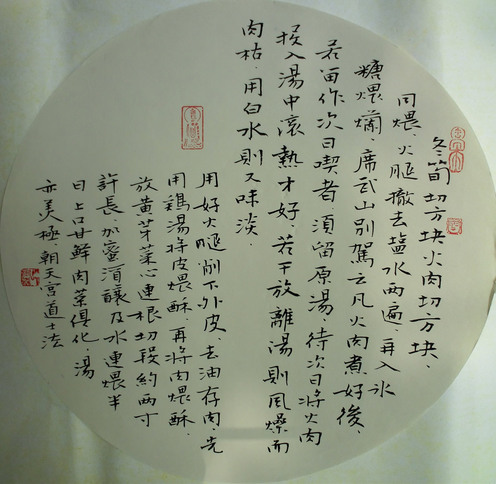 冬筍切方块火肉切方块、
同煨、火腿撤去盐水两遍、再入冰
糖煨爛、席武山别駕云凡火肉煮好後、
若留作次日喫者須留原湯、待次日將火肉
投入湯中滚熱才好、若干放離湯則風燥而
肉枯、用白水則又味淡、
用好火腿削下外皮、去油存肉、先
用鷄湯将皮煨酥、再将肉煨酥、
放黄芽菜心連根切段約两寸
許長、加蜜酒釀及水連煨半
日上口甘鮮肉菜俱化、湯
亦美極、朝天宫道士法